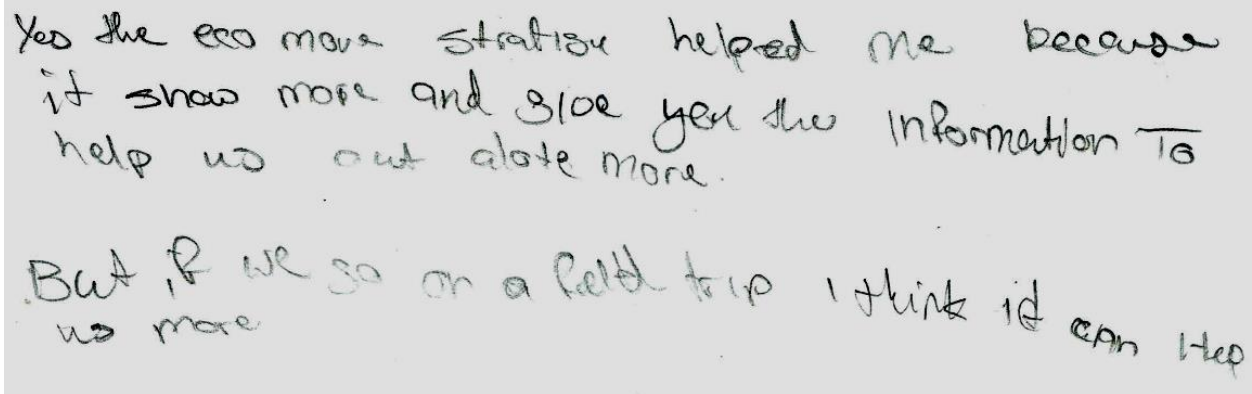 Yes the eco move stratigy helped me because
it show more and give you the information To
help us out alote more.
But if we go on a feild trip I think it can Hep
us more